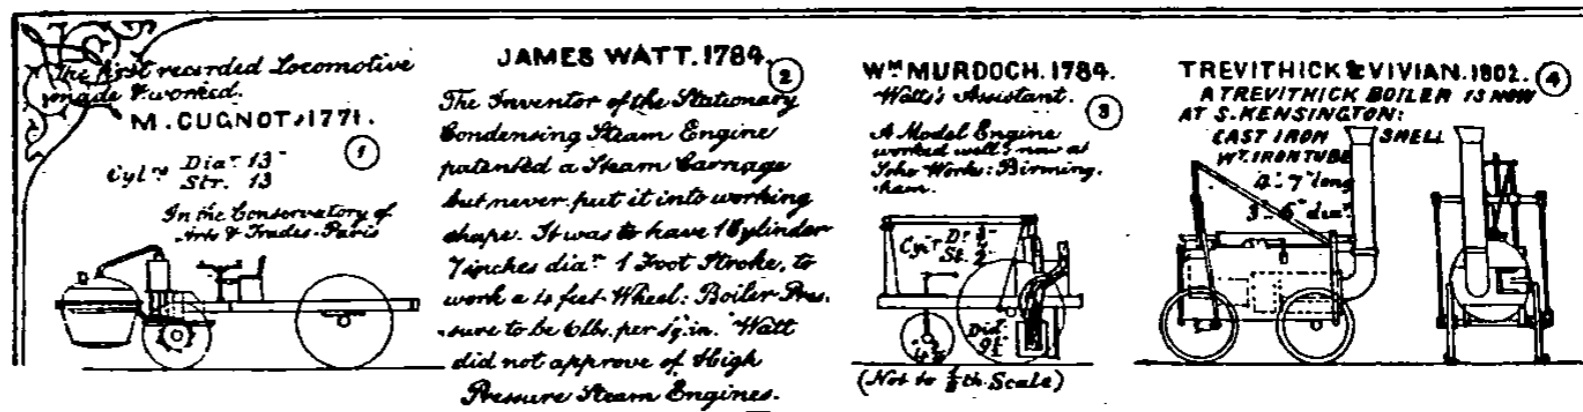 The first recorded Locomotive
made & worked.
M. CUGNOT, 1771.
1
Cylrs Diar 13"
Str. 13
In the Conservatory of
Arts & Trades - Paris
JAMES WATT. 1784.
2
The Inventor of the Stationary
Condensing Steam Engine
patented a Steam Carriage
but never put it into working
shape. It was to have 1 Cylinder
7 inches diar 1 Foot Stroke, to
work a feet Wheel: Boiler Pres-
sure to be lbs. per sq. in. Watt
did not approve of High
Pressure Steam Engines.
Wm MURDOCH. 1784.
Watts's Assistant.
3
A Model Engine
worked well: now at
Soho Works: Birming-
ham.
Cylr Dr
St. 2"
Dia
9½
(Not to th Scale)
TREVITHICK & VIVIAN. 1802.
4
A TREVITHICK BOILER IS NOW
AT S. KENSINGTON:
CAST IRON SHELL
WT. IRON TUBE
4'- 7" long
diar